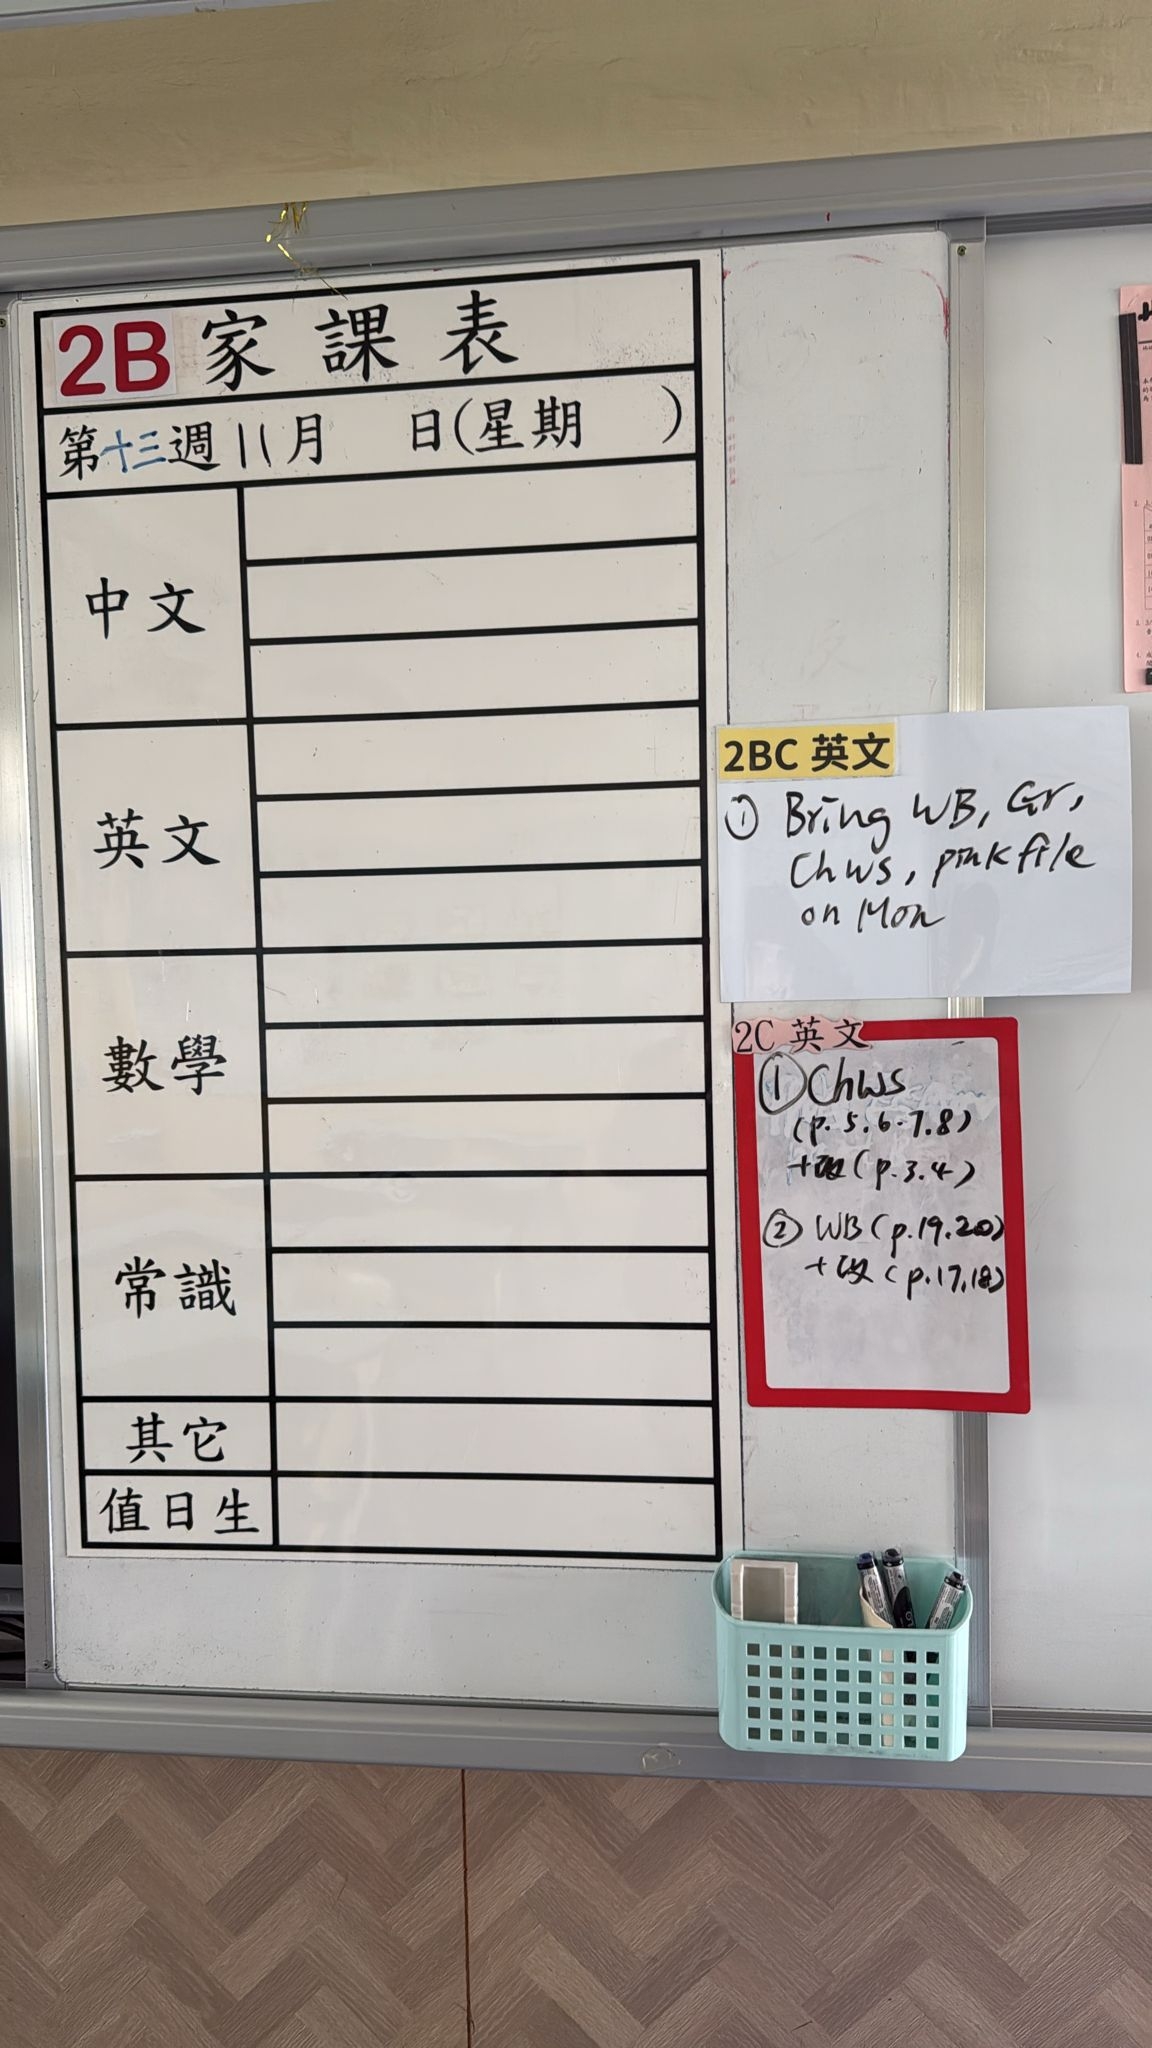 2B 家課表
第十三週 11月 日(星期 )
中文
英文
數學
常識
其它
值日生
2BC 英文
① Bring WB, Gr,
Chws, pink file
on Mon
2C 英文
① Chws
(p. 5.6.7.8)
+改(p.3.4)
② WB (p.19.20)
+改(p.17,18)